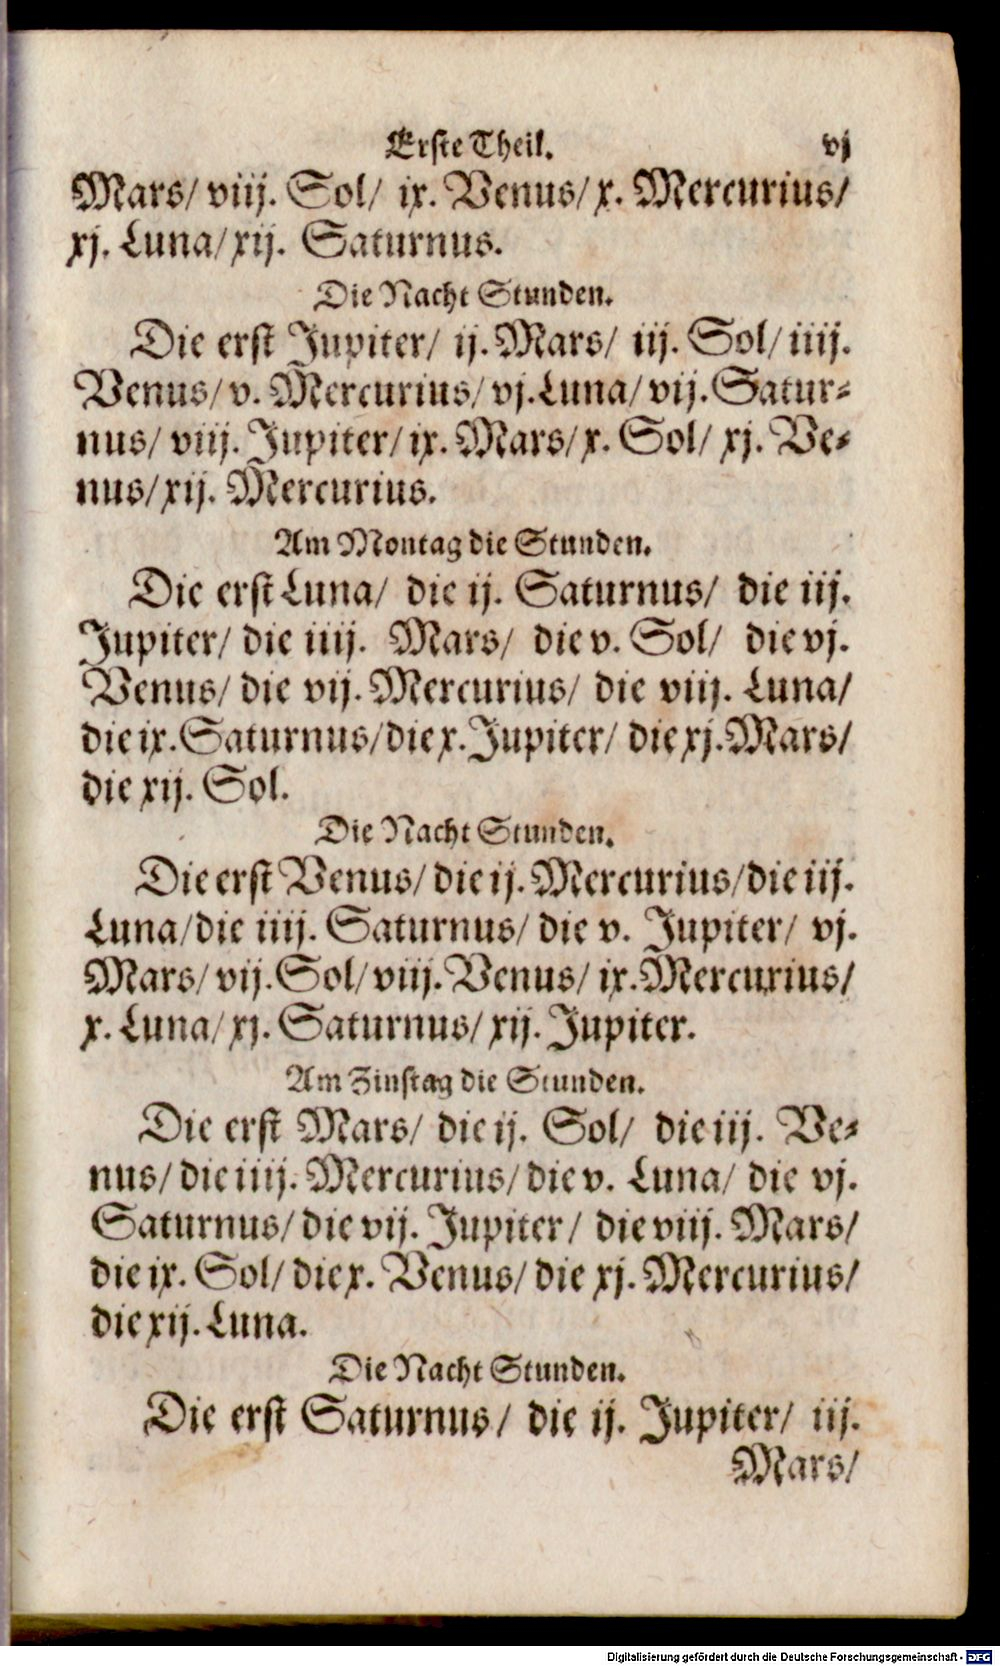 Erste Theil. vj
Mars/ viij. Sol/ ix. Venus/ x. Mercurius/
xj. Luna/ xij. Saturnus.
Die Nacht Stunden.
Die erst Jupiter/ ij. Mars/ iij. Sol/ iiij.
Venus/ v. Mercurius/ vj. Luna/ vij. Satur-
nus/ viij. Jupiter/ ix. Mars/ x. Sol/ xj. Ve-
nus/ xij. Mercurius.
Am Montag die Stunden.
Die erst Luna/ die ij. Saturnus/ die iij.
Jupiter/ die iiij. Mars/ die v. Sol/ die vj.
Venus/ die vij. Mercurius/ die viij. Luna/
die ix. Saturnus/ die x. Jupiter/ die xj. Mars/
die xij. Sol.
Die Nacht Stunden.
Die erst Venus/ die ij. Mercurius/ die iij.
Luna/ die iiij. Saturnus/ die v. Jupiter/ vj.
Mars/ vij. Sol/ viij. Venus/ ix. Mercurius/
x. Luna/ xj. Saturnus/ xij. Jupiter.
Am Zinstag die Stunden.
Die erst Mars/ die ij. Sol/ die iij. Ve-
nus/ die iiij. Mercurius/ die v. Luna/ die vj.
Saturnus/ die vij. Jupiter/ die viij. Mars/
die ix. Sol/ die x. Venus/ die xj. Mercurius/
die xij. Luna.
Die Nacht Stunden.
Die erst Saturnus/ die ij. Jupiter/ iij.
Mars/
Digitalisierung gefördert durch die Deutsche Forschungsgemeinschaft - DFG